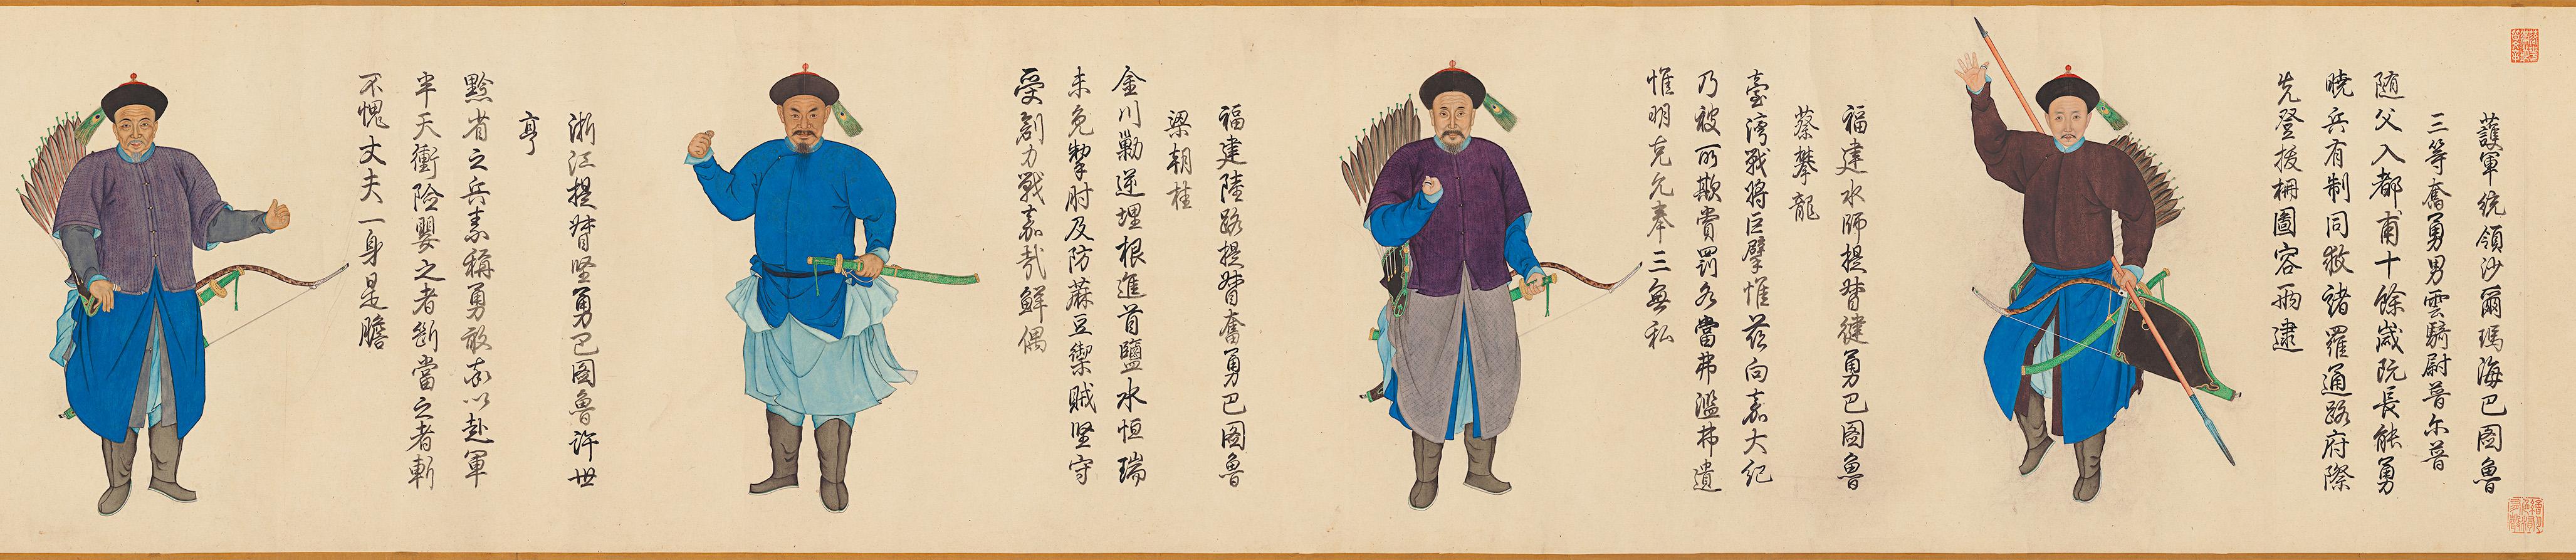 護軍統領沙爾瑪海巴圖魯
三等奮勇男雲騎尉普尔普
随父入都甫十餘歲阮長能勇
曉兵有制同敇諸羅通路府際
先登拔柵圖容兩逮
福建水師提督健勇巴圖魯
蔡攀龍
臺湾戰將巨擘惟茲向嘉大紀
乃被所欺賞罰各當弗濫弗遺
惟明克允奉三無私
福建陸路提督奮勇巴圖魯
梁朝桂
金川勦逆埋根進首鹽水恒瑞
未免掣肘及防蔴豆禦賊坚守
受創力戰嘉哉鮮偶
浙江提督坚勇巴圖魯許世
亨
黔省之兵素稱勇敢率以赴軍
半天衝險嬰之者斷當之者斬
不愧丈夫一身是膽